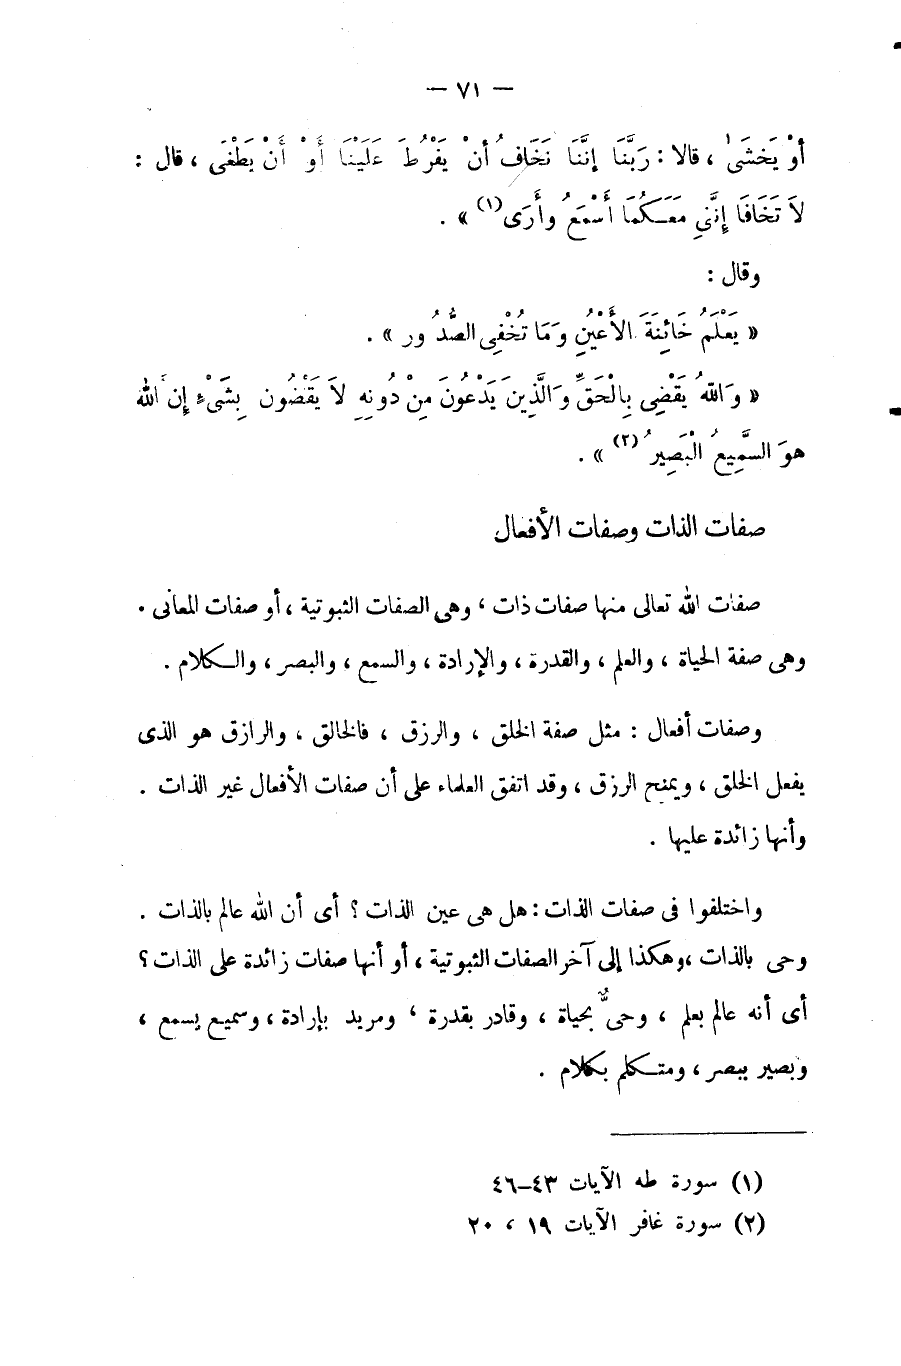 — ٧١ —
أَوْ يَخْشَىٰ ، قالا : رَبَّنَا إِنَّنَا نَخَافُ أَنْ يَفْرُطَ عَلَيْنَا أَوْ أَنْ يَطْغَى ، قال :
لاَ تَخَافَا إِنَّنِي مَعَكُمَا أَسْمَعُ وأَرَى (١) » .
وقال :
« يَعْلَمُ خَائِنَةَ الأَعْيُنِ وَمَا تُخْفِي الصُّدُور » .
« وَاللهُ يَقْضِي بِالْحَقِّ وَالَّذِينَ يَدْعُونَ مِنْ دُونِهِ لاَ يَقْضُون بِشَيْءٍ إِن اللهَ
هوَ السَّمِيعُ الْبَصِيرُ (٢) » .
صفات الذات وصفات الأفعال
صفات الله تعالى منها صفات ذات ، وهى الصفات الثبوتية ، أو صفات المعانى .
وهى صفة الحياة ، والعلم ، والقدرة ، والإرادة ، والسمع ، والبصر ، والكلام .
وصفات أفعال : مثل صفة الخلق ، والرزق ، فالخالق ، والرازق هو الذى
يفعل الخلق ، ويمنح الرزق ، وقد اتفق العلماء على أن صفات الأفعال غير الذات .
وأنها زائدة عليها .
واختلفوا فى صفات الذات : هل هى عين الذات ؟ أى أن الله عالم بالذات .
وحى بالذات ، وهكذا إلى آخر الصفات الثبوتية ، أو أنها صفات زائدة على الذات ؟
أى أنه عالم بعلم ، وحىٌّ بحياة ، وقادر بقدرة ، ومريد بإرادة ، وسميع يسمع ،
وبصير ببصر ، ومتكلم بكلام .
(١) سورة طه الآيات ٤٣–٤٦
(٢) سورة غافر الآيات ١٩ ، ٢٠